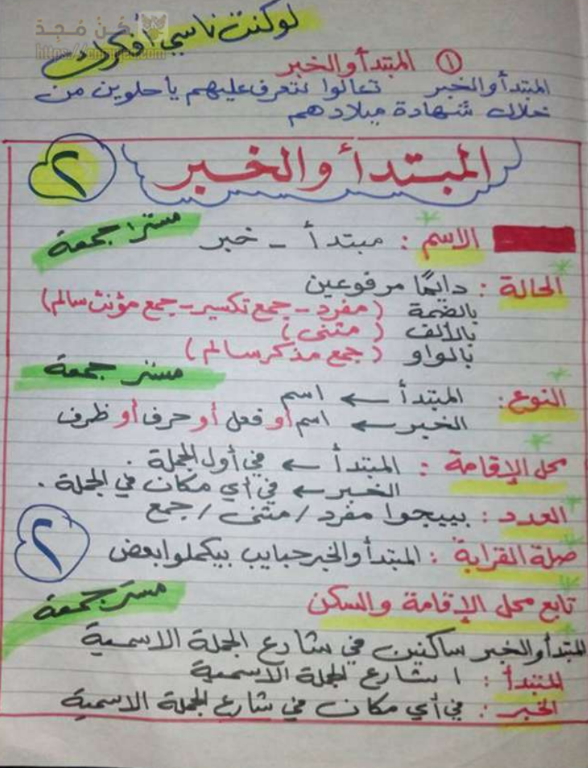 لو كنت ناسي أفكرك
نحن مجد
① المبتدأ والخبر
المبتدأ والخبر تعالوا نتعرف عليهم يا حلوين من
خلال شهادة ميلادهم
المبتدأ والخبر
٢
الاسم : مبتدأ - خبر
مستر جمعة
الحالة : دايمًا مرفوعين
بالضمة (مفرد - جمع تكسير - جمع مؤنث سالم)
بالألف (مثنى)
بالواو (جمع مذكر سالم)
مستر جمعة
النوع : المبتدأ ← اسم
الخبر ← اسم أو فعل أو حرف أو ظرف
محل الإقامة : المبتدأ ← في أول الجملة .
الخبر ← في أي مكان في الجملة .
العدد : بييجوا مفرد / مثنى / جمع
صلة القرابة : المبتدأ والخبر حبايب بيكملوا بعض
٢
تابع محل الإقامة والسكن
مستر جمعة
المبتدأ والخبر ساكنين في شارع الجملة الاسمية
المبتدأ : ١ شارع الجملة الاسمية
الخبر : في أي مكان في شارع الجملة الاسمية